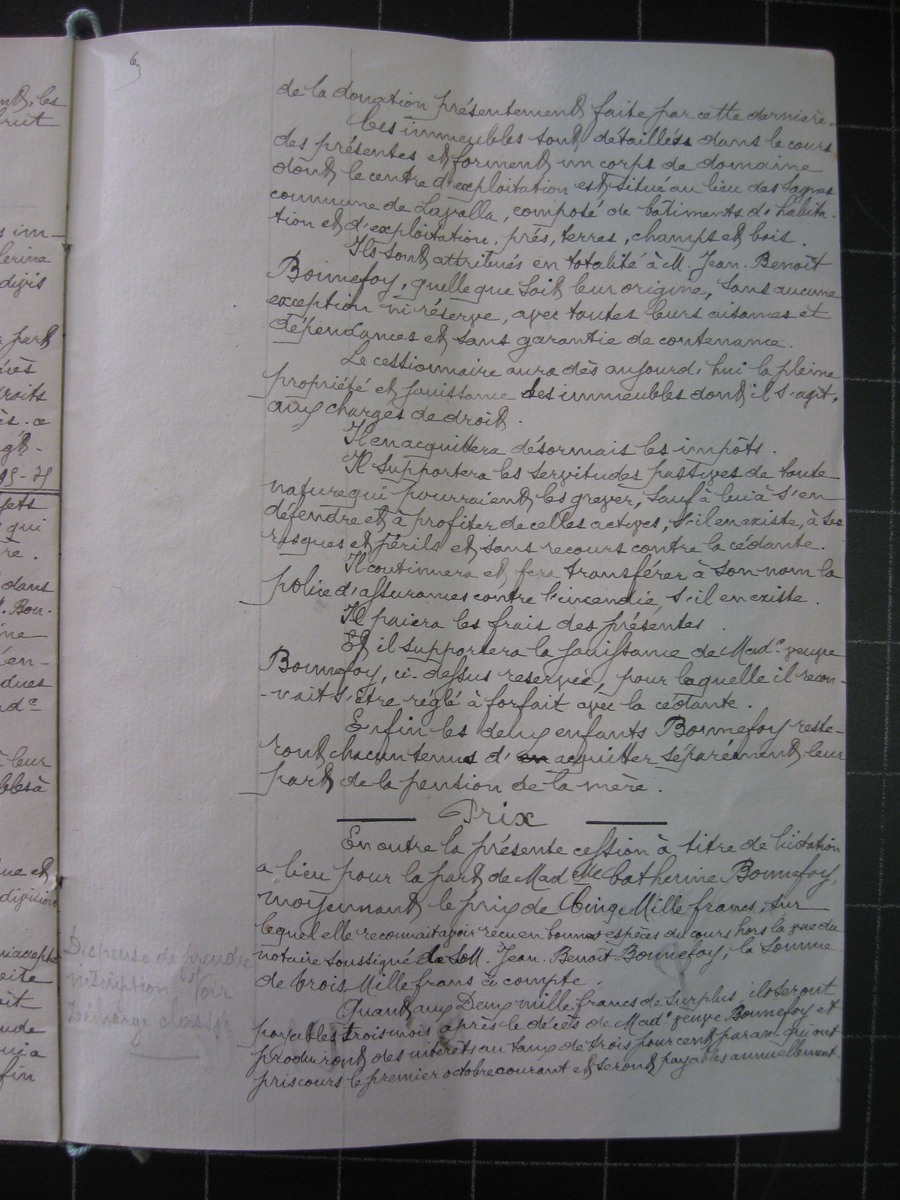 6
de la donation présentement faite par cette dernière.
Les immeubles sont détaillés dans le cours
des présentes et forment un corps de domaine
dont le centre d'exploitation est situé au lieu des Sagnes
commune de Lavalla, composé de bâtiments d'habita-
tion et d'exploitation, prés, terres, champs et bois.
Ils sont attribués en totalité à M. Jean-Benoît
Bonnefoy, quelle que soit leur origine, sans aucune
exception ni réserve, avec toutes leurs aisances et
dépendances et sans garantie de contenance.
Le cessionnaire aura dès aujourd'hui la pleine
propriété et jouissance des immeubles dont il s'agit,
aux charges de droit.
Il en acquittera désormais les impôts.
Il supportera les servitudes passives de toute
nature qui pourraient les grever, sauf à lui à s'en
défendre et à profiter de celles actives, s'il en existe, à ses
risques et périls et sans recours contre la cédante.
Il continuera et fera transférer à son nom la
police d'assurances contre l'incendie, s'il en existe.
Il paiera les frais des présentes.
Et il supportera la jouissance de Made veuve
Bonnefoy, ci-dessus reservée, pour laquelle il recon-
-nait s'être réglé à forfait avec la cédante.
Enfin les deux enfants Bonnefoy reste-
ront chacun tenus d'en acquitter séparément leur
part de la pension de la mère.
Prix
En outre la présente cession à titre de licitation
a lieu pour la part de Madelle Catherine Bonnefoy,
moyennant le prix de Cinq Mille francs, sur
lequel elle reconnait avoir reçu en bonnes espèces du cours hors la vue du
notaire soussigné de M. Jean-Benoît Bonnefoy, la somme
de Trois Mille francs à compte.
Quant aux Deux mille francs de surplus, ils seront
payables trois mois après le décès de Made veuve Bonnefoy et
produiront des intérêts au taux de trois pour cent par an qui ont
pris cours le premier octobre courant et seront payables annuellement
Dispense de prendre
inscription Voir
Décharge